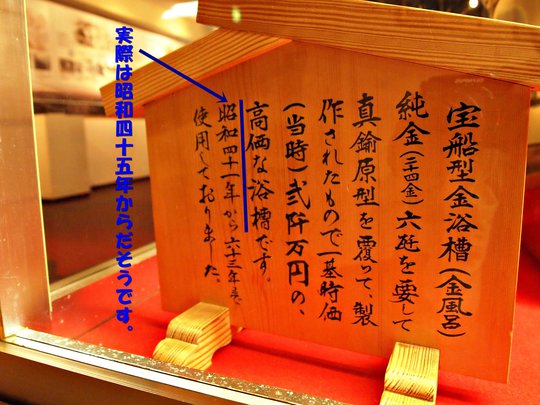 宝船型金浴槽(金風呂)
純金(二十四金)六瓩を要して
真鍮原型を覆って、製
作されたもので一基時価
(当時)弐阡万円の、
高価な浴槽です。
昭和四十一年から六十三年まで
使用しておりました。
実際は昭和四十五年からだそうです。